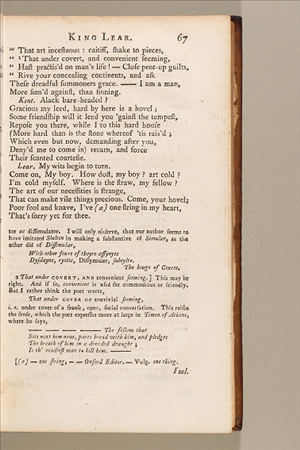 KING LEAR. 67
" That art incestuous: caitiff, shake to pieces,
" ² That under covert, and convenient seeming,
" Hast practis'd on man's life! — Close pent-up guilts,
" Rive your concealing continents, and ask
These dreadful summoners grace. —— I am a man,
More sinn'd against, than sinning.
Kent. Alack bare-headed?
Gracious my lord, hard by here is a hovel;
Some friendship will it lend you 'gainst the tempest,
Repose you there, while I to this hard house
(More hard than is the stone whereof 'tis rais'd;
Which even but now, demanding after you,
Deny'd me to come in) return, and force
Their scanted courtesie.
Lear. My wits begin to turn.
Come on, My boy. How dost, my boy? art cold?
I'm cold myself. Where is the straw, my fellow?
The art of our necessities is strange,
That can make vile things precious. Come, your hovel;
Poor fool and knave, I've (a) one string in my heart,
That's sorry yet for thee.
tor or dissimulator. I will only observe, that our author seems to
have imitated Skelton in making a substantive of Simular, as the
other did of Dissimular,
With other foure of theyre affynyte
Dysdayne, ryotte, Dissymuler, subtylte.
The bouge of Courte.
2 That under COVERT, AND convenient seeming,] This may be
right. And if so, convenient is used for commodious or friendly.
But I rather think the poet wrote,
That under COVER OF convivial seeming,
i. e. under cover of a frank, open, social conversation. This raises
the sense, which the poet expresses more at large in Timon of Athens,
where he says,
— — — — The fellow that
Sits next him now, parts bread with him, and pledges
The breath of him in a divided draught;
Is th' readiest man to kill him. ——
[(a) — one string, — — Oxford Editor. — Vulg. one thing.
Fool.